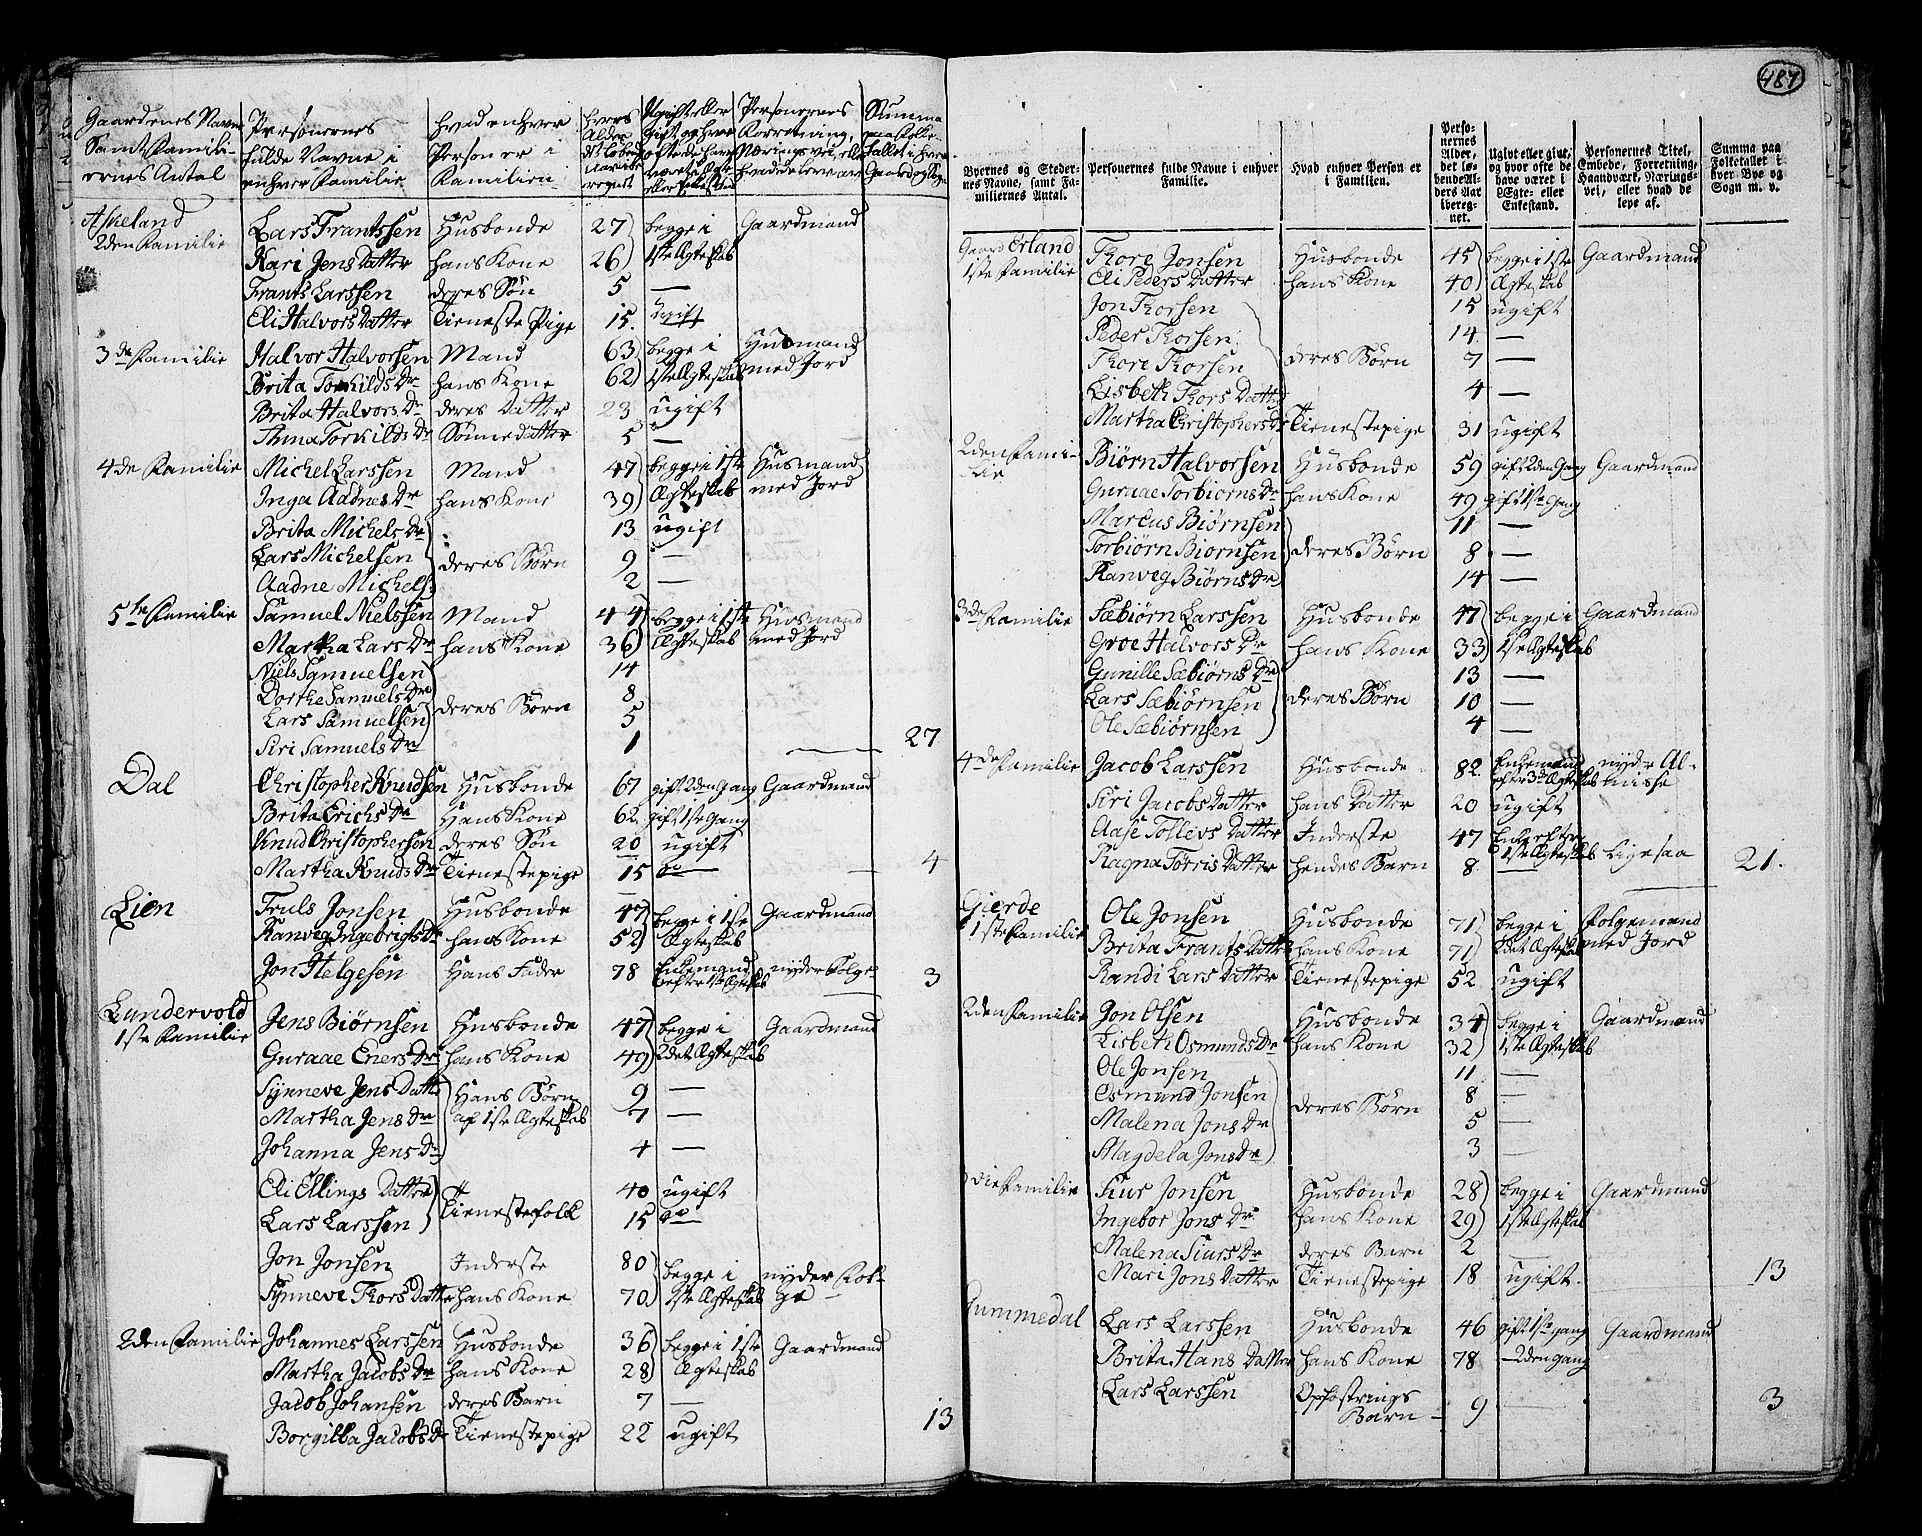 Gaardenes Navne Samt Famili- ernes Antal
Personernes fulde Navne i enhver Familie
hvad enhver Person er i Familien
Personernes Forretning, Næringsvei, eller hvad de lever av
Askeland
2den Familie Lars Frantssen Husbonde 27 begge i Gaardmand
Kari Jens Datter hans Kone 26 1ste Ægteskab
Frants Larssen deres Søn 5 —
Eli Halvors Datter Tieneste Pige 15. ugift
3de Familie Halvor Halvorsen Mand 63 begge i Husmand
Brita Torkilds Dr hans Kone 62 1ste Ægteskab med Jord
Brita Halvors Dr deres Datter 23 ugift
Anna Torkilds Dr Sønnedatter 5 —
4de Familie Michel Larssen Mand 47 begge i 1ste Husmand
Inga Aadnes Dr hans Kone 39 Ægteskab med Jord
Brita Michels Dr 13 ugift
Lars Michelsen deres Børn 9 —
Aadne Michels: 2 —
5te Familie Samuel Nielssen Mand 44 begge i 1ste Husmand
Martha Lars Dr hans Kone 36 Ægteskab med Jord
Niels Samuelsen 14
Dorthe Samuels Dr deres Børn 8
Lars Samuelsen 5
Siri Samuels Dr 1 27
Dal Christopher Knudsen Husbonde 67 gift 2den Gang Gaardmand
Brita Erichs Dr Hans Kone 62 gift 1ste Gang
Knud Christophersen deres Søn 20 ugift
Martha Knuds Dr Tienestepige 15 do 4
Lien Truls Jonsen Husbonde 47 begge i 1ste Gaardmand
Ranveg Ingebrigts Dr hans Kone 52 Ægteskab
Jon Helgesen Hans Fader 78 Enkemand efter 1ste Ægteskab nyder Folge 3
Lundervold
1ste Familie Jens Biørnsen Husbonde 47 begge i Gaardmand
Guraae Eners Dr hans Kone 49 2det Ægteskab
Synneve Jens Datter Hans Børn 9 —
Martha Jens Dr af 1ste Ægteskab 7 —
Johanna Jens Dr 4 —
Eli Ellings Datter Tienestefolck 40 ugift
Lars Larssen 15 do
Jon Jonsen Inderste 80 begge i nyder Fol-
Synneve Thors Datter hans Kone 70 1ste Ægteskab ge
2den Familie Johannes Larssen Husbonde 36 begge i 1ste Gaardmand
Martha Jacobs Dr hans Kone 28 Ægteskab
Jacob Johansen deres Barn 7 —
Borgilla Jacobs Dr Tienestepige 22 ugift 13
487
Byernes og Steder- nes Navne, samt Fa- miliernes Antal.
Personernes fulde Navne i enhver Familie.
Hvad enhver Person er i Familien.
Perso- nernes Alder, det lø- bende Al- ders Aar iberegnet.
Ugivt eller givt, og hvor ofte de have været i Ægte- eller Enkestand.
Personernes Titel, Embede, Forretning, Haandværk, Nærings- vei, eller hvad de leve af.
Summa paa Folketallet i hver Bye og Sogn m. v.
Gaard Erland
1ste Familie Thore Jonsen Husbonde 45 begge i 1ste Gaardmand
Eli Peders Datter hans Kone 40 Ægteskab
Jon Thorsen 15 ugift
Peder Thorsen 14 —
Thore Thorsen deres Børn 7 —
Lisbeth Thors Datter 4 —
Martha Christophers Dr Tienestepige 31 ugift
2den Fami-
lie Biørn Halvorsen Husbonde 59 gift 2den Gang Gaardmand
Guraae Torbiorns Dr hans Kone 49 gift 1ste Gang
Marcus Biørnsen 11 —
Torbiørn Biornsen deres Børn 8 —
Ranveg Biørns Dr 14 —
3de Familie Sæbiørn Larssen Husbonde 47 begge i Gaardmand
Groe Halvors Dr hans Kone 33 1ste Ægteskab
Gunille Sæbiørns Dr 13 —
Lars Sæbiørnsen deres Børn 10 —
Ole Sæbiørnsen 4 —
4de Familie Jacob Larssen Husbonde 82 Enkemand efter 3die Ægteskab nyder Al- misse
Siri Jacobs Datter hans Datter 20 ugift
Aase Tollevs Datter Inderste 47 Enke efter 1ste Ægteskab Ligesaa
Ragna Torris Datter hendes Barn 8 — 21.
Gierde
1ste Familie Ole Jonsen Husbonde 71 begge i Folgemand
Brita Frants Datter hans Kone 71 2det Ægteskab med Jord
Randi Lars Datter Tienestepige 52 ugift
2den Familie Jon Olsen Husbonde 34 begge i Gaardmand
Lisbeth Osmunds Dr hans Kone 32 1ste Ægteskab
Ole Jonsen 11 —
Osmund Jonsen deres Børn 8 —
Malena Jons Dr 5 —
Magdela Jons Dr 3 —
3die Familie Siur Jonsen Husbonde 28 begge i Gaardmand
Ingebor Jons Dr hans Kone 29 1ste Ægteskab
Malena Siurs Dr deres Barn 2 —
Mari Jons Datter Tienestepige 18 ugift. 13
Lars Larssen Husbonde 46 gift 1ste gang Gaardmand
Brita Hans Datter hans Kone 78 — 2den gang
Lars Larssen Opfostrings Barn 9 — 3